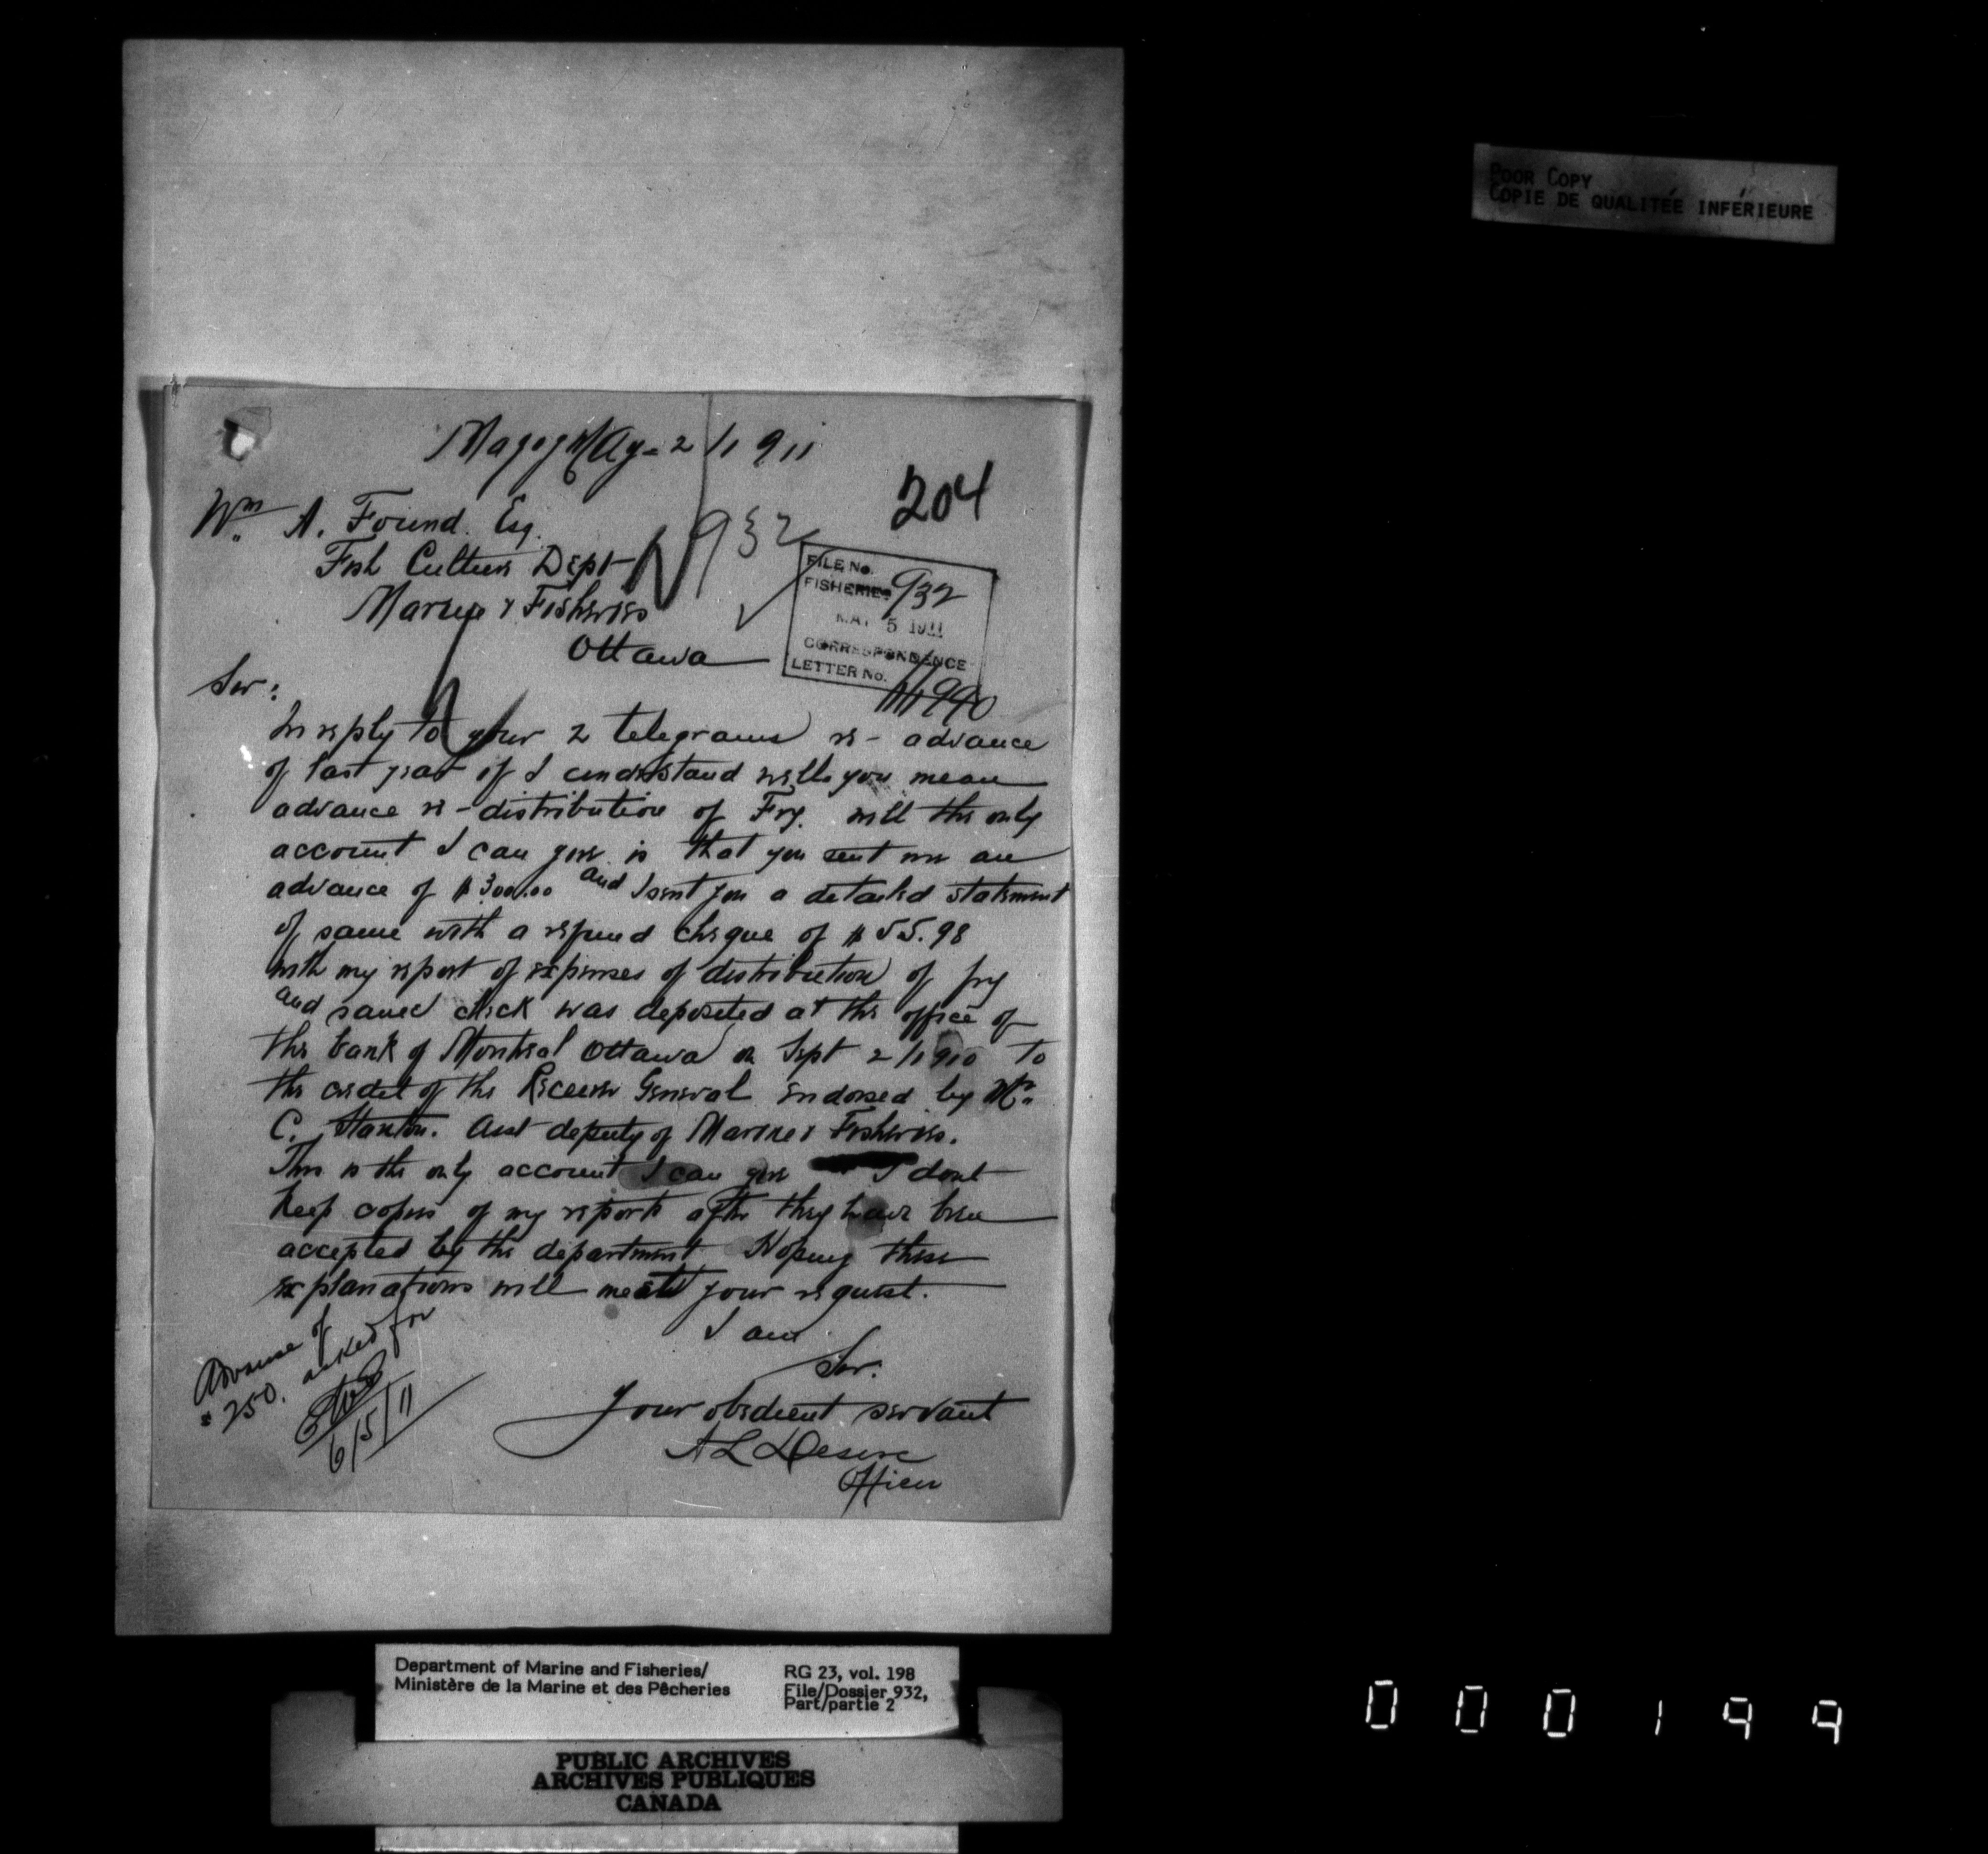 Magog May - 2/1911
204
Wm A. Found. Esq.
932
Fish Culture Dept
Marine & Fisheries
Ottawa
FILE No.
FISHERIES 932
MAY 5 1911
CORRESPONDENCE
LETTER No.
Sir:
In reply to your 2 telegrams re- advance
of last year if I understand well you mean
advance re-distribution of Fry. well the only
account I can give is that you sent me an
advance of $300.00 and I sent you a detailed statement
of same with a refund cheque of $55.98
with my report of expenses of distribution of fry
and same check was deposited at the office of
the bank of Montreal Ottawa on Sept 2/1910 to
the credit of the Receiver General endorsed by Mr.
C. Stanton. Asst deputy of Marine & Fisheries.
This is the only account I can give I dont
keep copies of my reports after they have been
accepted by the department Hoping these
explanations will meet your request.
I am
Sir.
Your obedient servant
A L Desève
Officer
Advance of
$250. asked for
6/5/11
POOR COPY
COPIE DE QUALITÉE INFÉRIEURE
Department of Marine and Fisheries/
Ministère de la Marine et des Pêcheries
RG 23, vol. 198
File/Dossier 932,
Part/partie 2
PUBLIC ARCHIVES
ARCHIVES PUBLIQUES
CANADA
000199